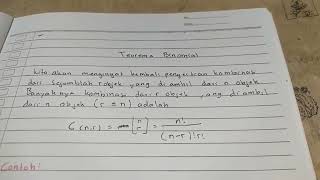 Teorema Binomial
Kita akan mengingat kembali pengertian kombinasi
dari sejumlah r objek yang di ambil dari n objek
Banyaknya kombinasi dari r objek yang di ambil
dari n objek (r ≤ n) adalah
C (n,r) = [n r] = n! / (n-r)! r!
Contoh: